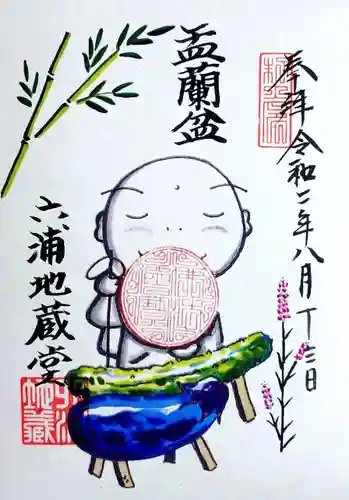 奉拝
令和二年八月十三日
盂蘭盆
六浦地蔵堂